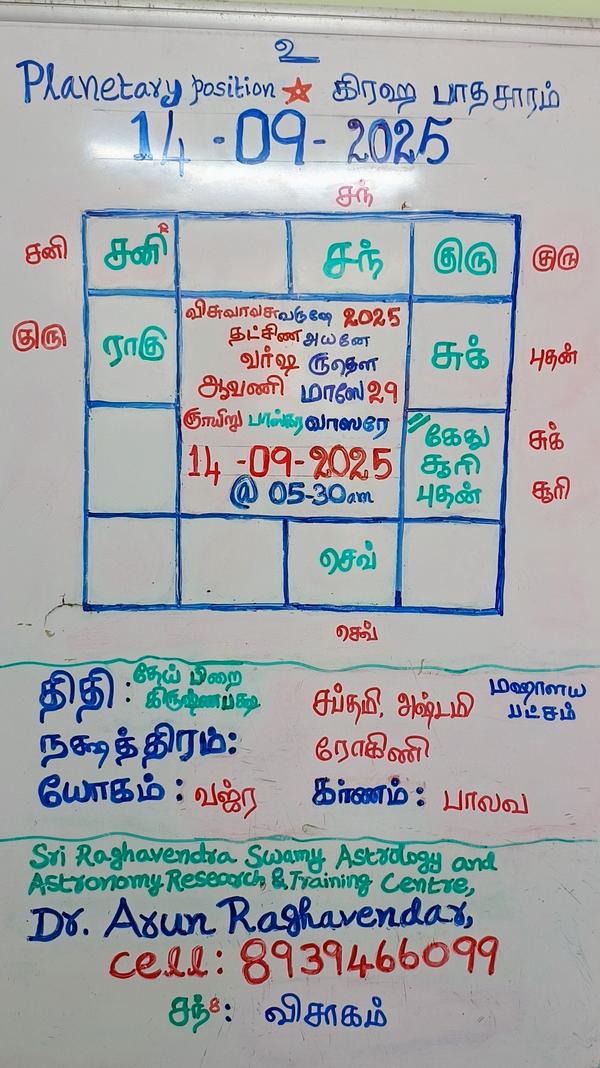 உ
Planetary position ☆ கிரஹ பாதசாரம்
14-09-2025
சந்
சனி சனி வ சந் குரு குரு
குரு ராகு சுக் புதன்
விசுவாவசுவருஷே 2025
தட்சிண அயனே
வர்ஷ ருதௌ
ஆவணி மாஸே 29
ஞாயிறு பாஸ்கர வாஸரே
14-09-2025
@ 05-30am
கேது சுக்
சூரி சூரி
புதன்
செவ்
செவ்
திதி : தேய் பிறை கிருஷ்ணபக்ஷ சப்தமி, அஷ்டமி மஹாளய பட்சம்
நக்ஷத்திரம்: ரோகிணி
யோகம் : வஜ்ர கர்ணம் : பாலவ
Sri Raghavendra Swamy Astrology and
Astronomy Research & Training Centre,
Dr. Arun Raghavendar,
cell: 8939466099
சந்8: விசாகம்